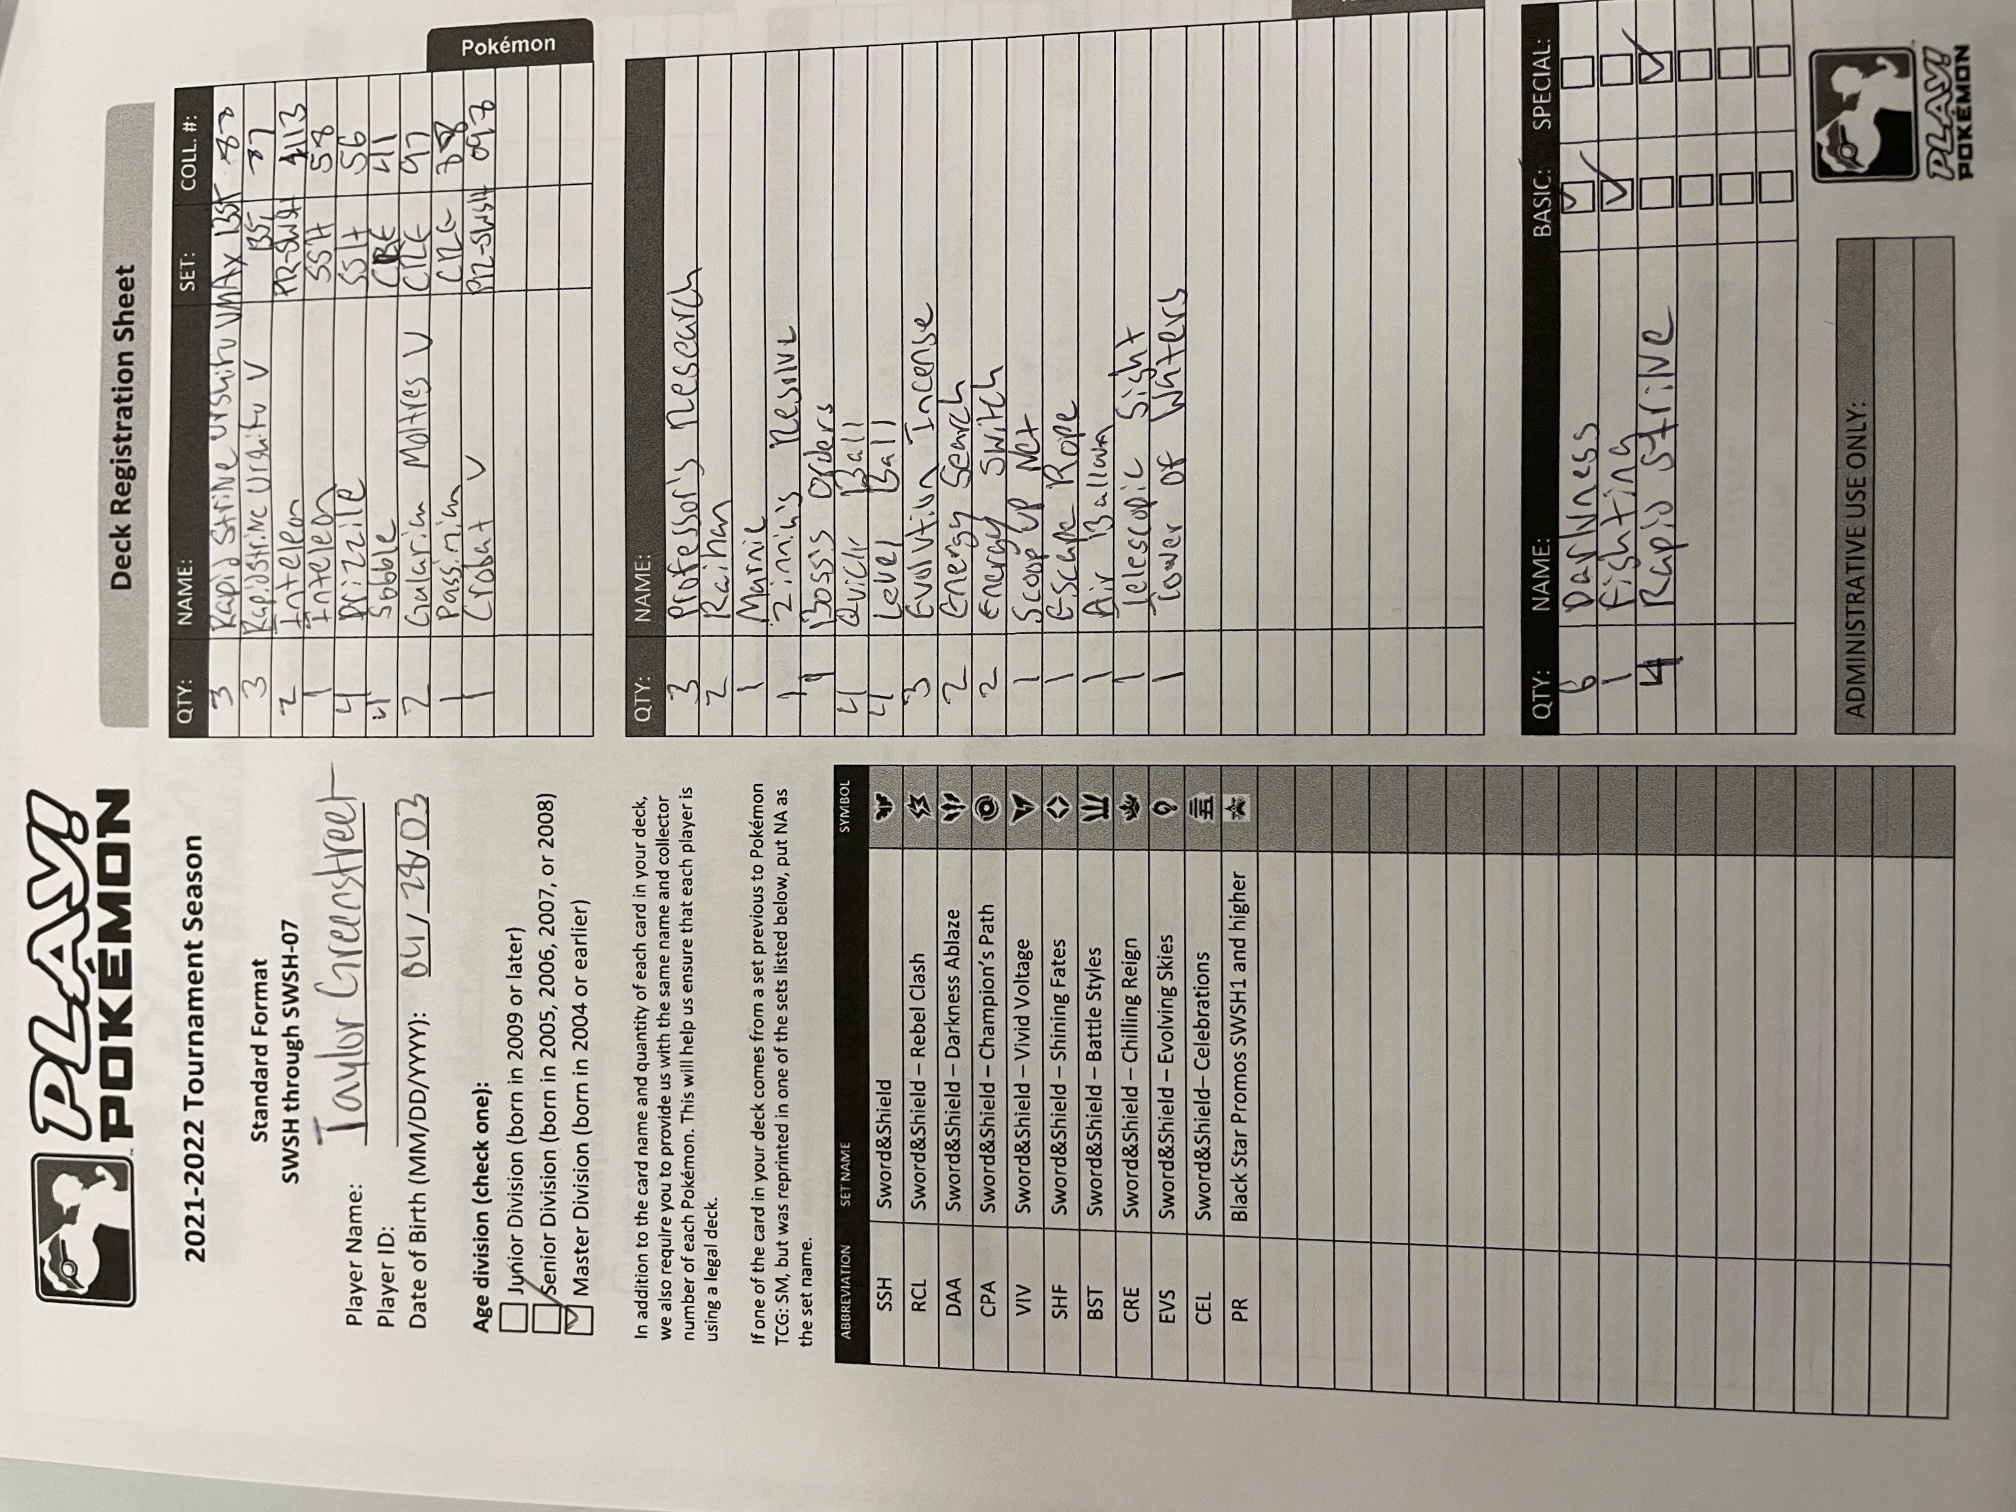 PLAY!
POKÉMON
2021-2022 Tournament Season
Standard Format
SWSH through SWSH-07
Player Name: Taylor Greenstreet
Player ID:
Date of Birth (MM/DD/YYYY): 04/28/03
Age division (check one):
Junior Division (born in 2009 or later)
Senior Division (born in 2005, 2006, 2007, or 2008)
Master Division (born in 2004 or earlier)
In addition to the card name and quantity of each card in your deck,
we also require you to provide us with the same name and collector
number of each Pokémon. This will help us ensure that each player is
using a legal deck.
If one of the card in your deck comes from a set previous to Pokémon
TCG: SM, but was reprinted in one of the sets listed below, put NA as
the set name.
ABBREVIATION SET NAME SYMBOL
SSH Sword&Shield
RCL Sword&Shield – Rebel Clash
DAA Sword&Shield – Darkness Ablaze
CPA Sword&Shield – Champion's Path
VIV Sword&Shield – Vivid Voltage
SHF Sword&Shield – Shining Fates
BST Sword&Shield – Battle Styles
CRE Sword&Shield – Chilling Reign
EVS Sword&Shield – Evolving Skies
CEL Sword&Shield– Celebrations
PR Black Star Promos SWSH1 and higher
Deck Registration Sheet
QTY: NAME: SET: COLL. #:
3 Rapid Strike Urshifu VMAX BST 88
3 Rapid Strike Urshifu V BST 87
2 Inteleon PR-SWSH 113
1 Inteleon SSH 58
4 Drizzile SSH 56
4 Sobble CRE 41
2 Galarian Moltres V CRE 97
1 Passimian CRE 88
1 Crobat V PR-SWSH 098
Pokémon
QTY: NAME:
3 Professor's Research
2 Raihan
1 Marnie
1 Zinnia's Resolve
1 Boss's Orders
4 Quick Ball
4 Level Ball
3 Evolution Incense
2 Energy Search
2 Energy Switch
1 Scoop Up Net
1 Escape Rope
1 Air Balloon
1 Telescopic Sight
1 Tower of Waters
QTY: NAME: BASIC: SPECIAL:
6 Darkness
1 Fighting
4 Rapid Strike
ADMINISTRATIVE USE ONLY:
PLAY!
POKÉMON